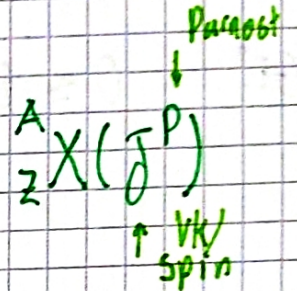 Parnost
↓
A
Z X(J^P)
↑ VK/
spin